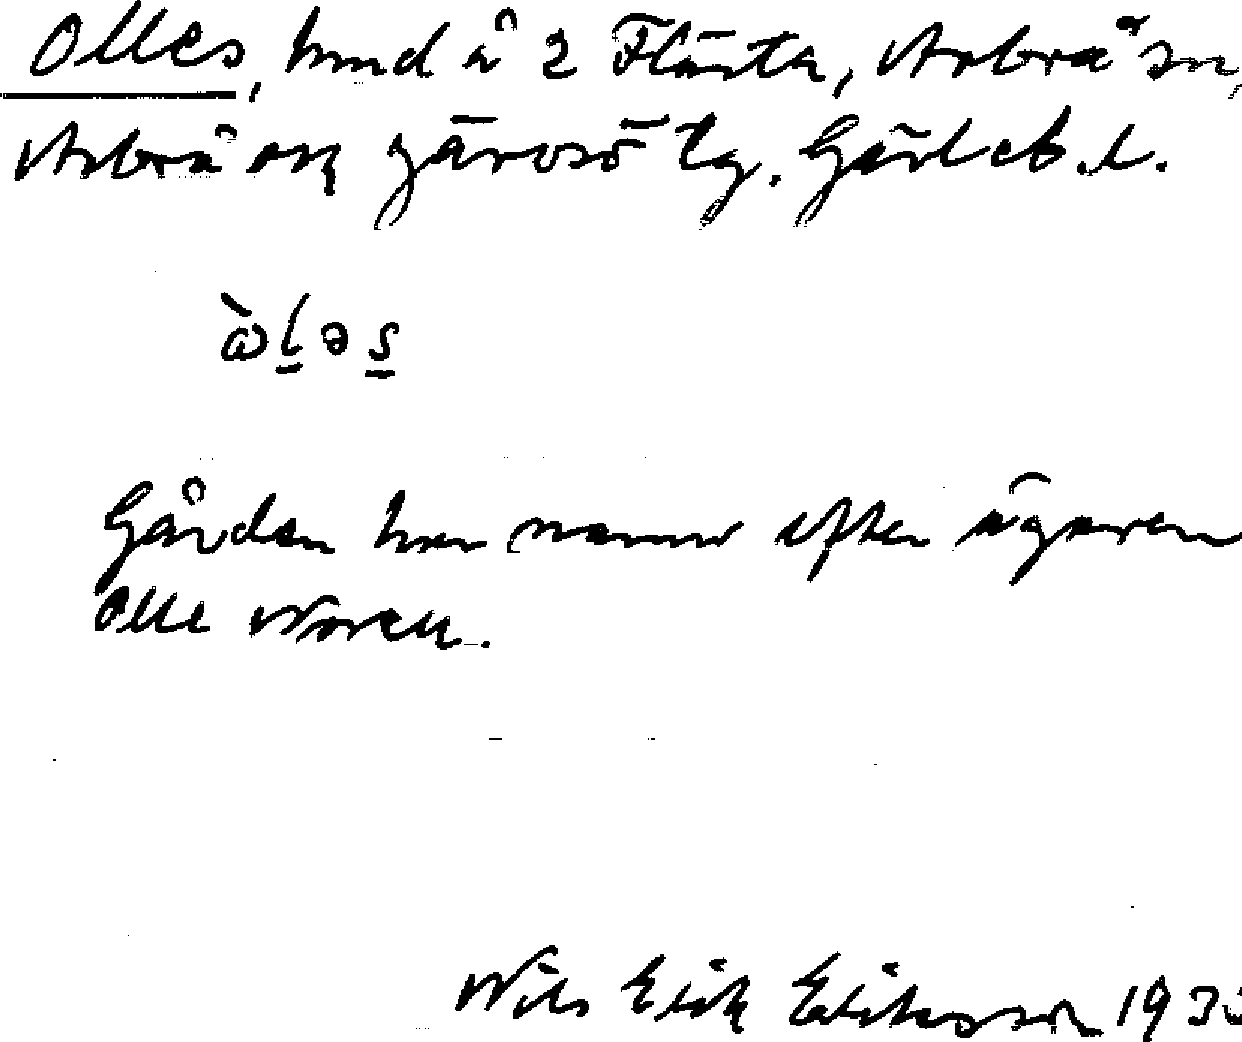 Olles, hmd å 2 Flästa, Arbrå sn,
Arbrå och Järvsö tg. Gävleb. l.
Gården har namn efter ägaren
Olle Norell.
Nils Erik Eriksson 193